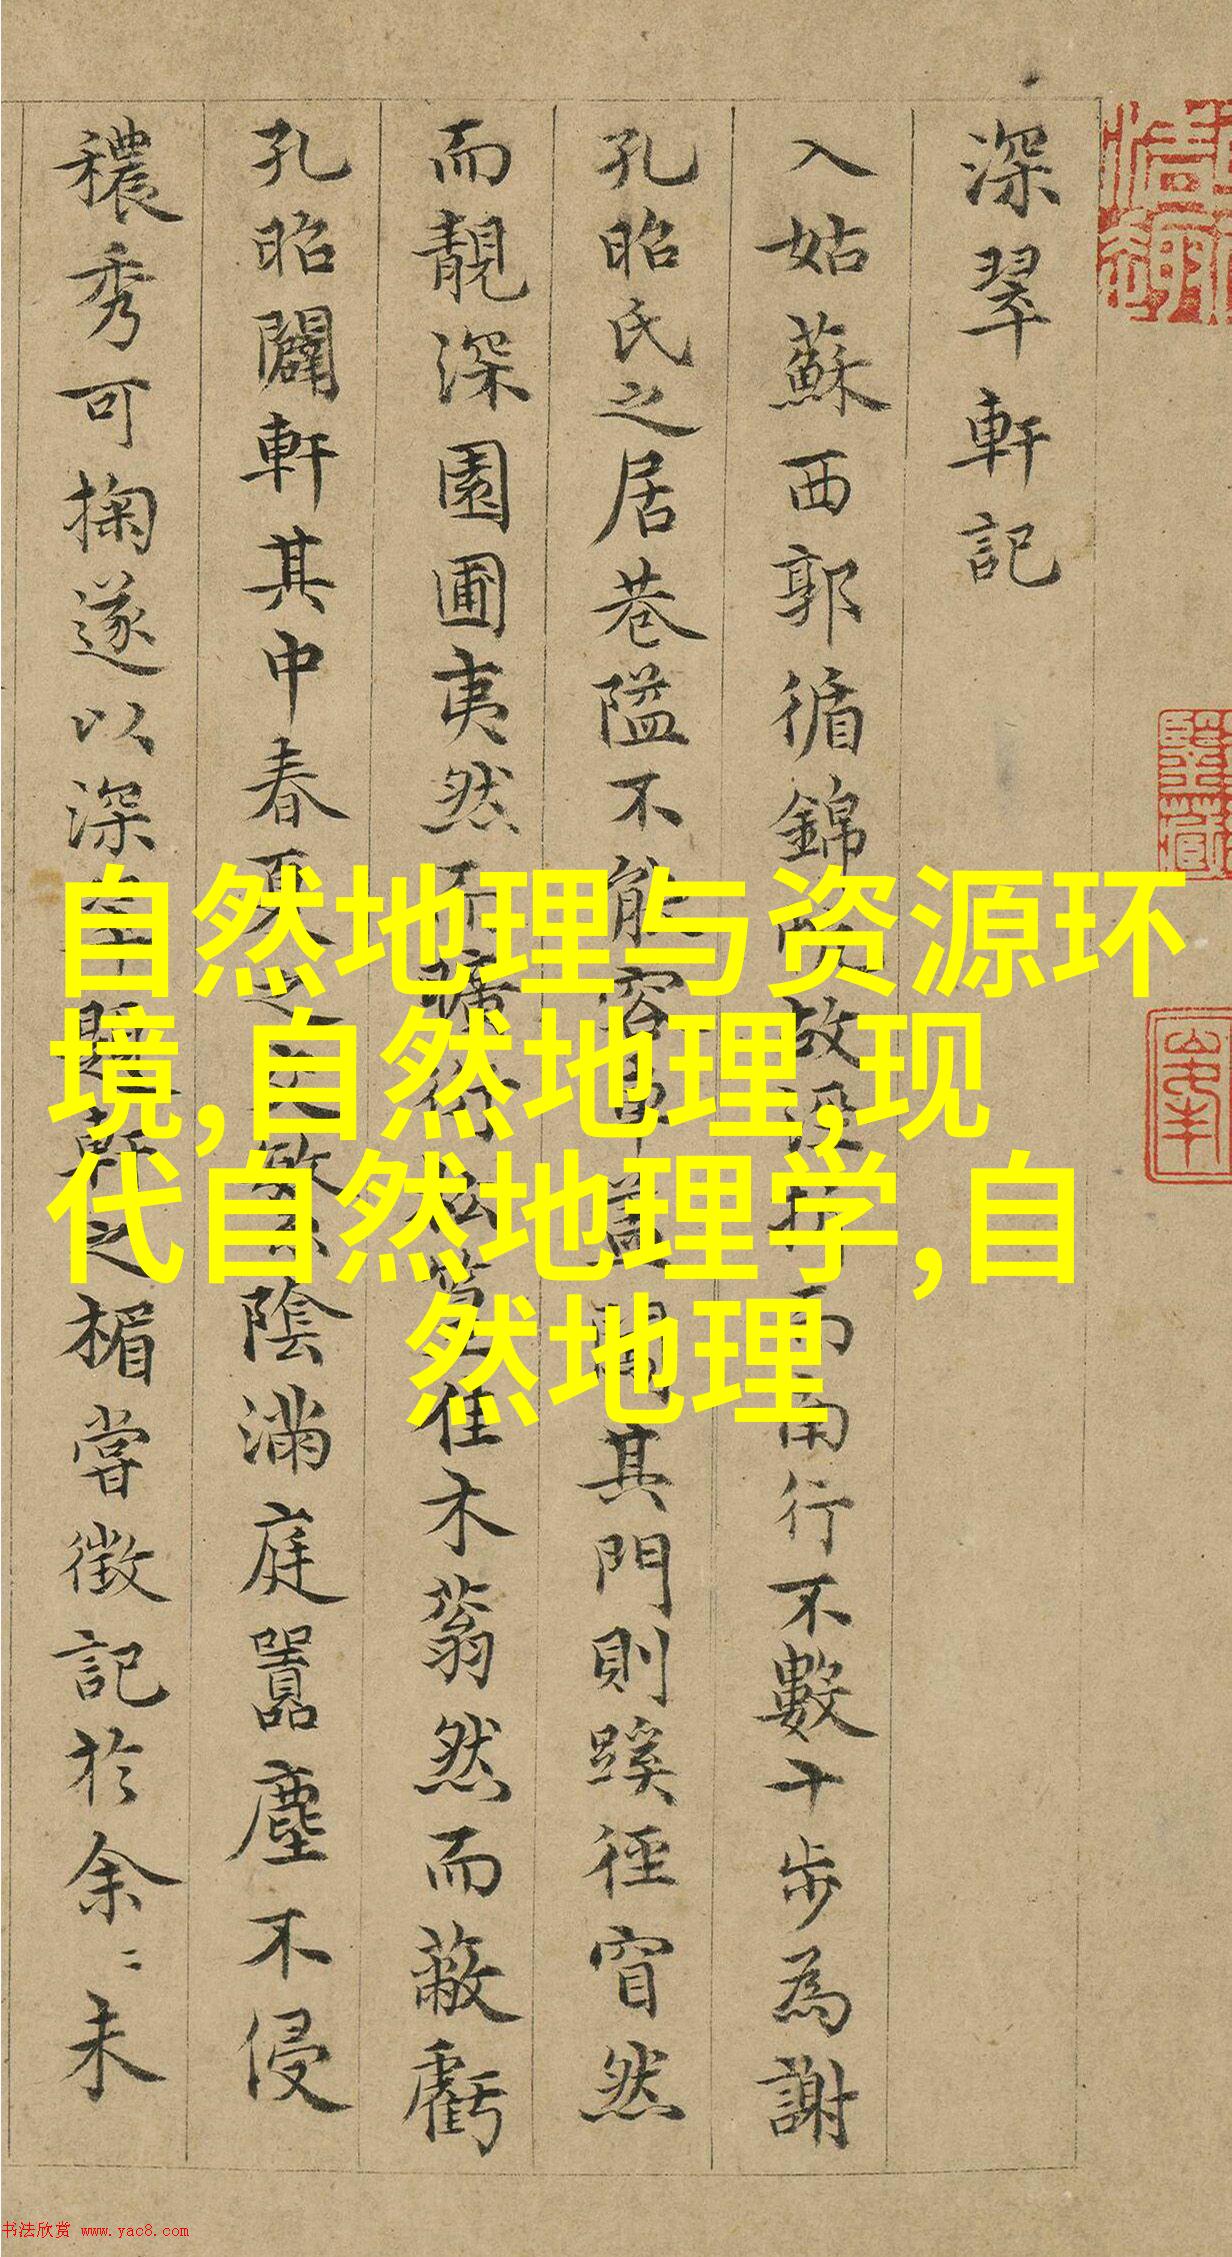 深翠軒記
入姑蘇西郭循錦 故 而南行不數十步為謝
孔昭氏之居巷隘不能容車蓋 其門則蹊徑窅然
而靚深園圃夷然而曠 佳木蓊然而蔽虧
孔昭闢軒其中春夏之 陰滿庭囂塵不侵
穠秀可掬遂以深翠題軒之楣嘗徵記於余〻未
自然地理与资源环
境,自然地理,现
代自然地理学,自
然地理
书法欣赏 www.yac8.com